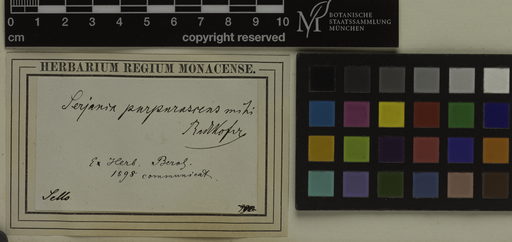 0 1 2 3 4 5 6 7 8 9 10
cm
copyright reserved
BOTANISCHE
STAATSSAMMLUNG
MÜNCHEN
HERBARIUM REGIUM MONACENSE.
Serjania purpurascens mihi
Radlkofer
Ex Herb. Berol.
1898 communicat.
Sello